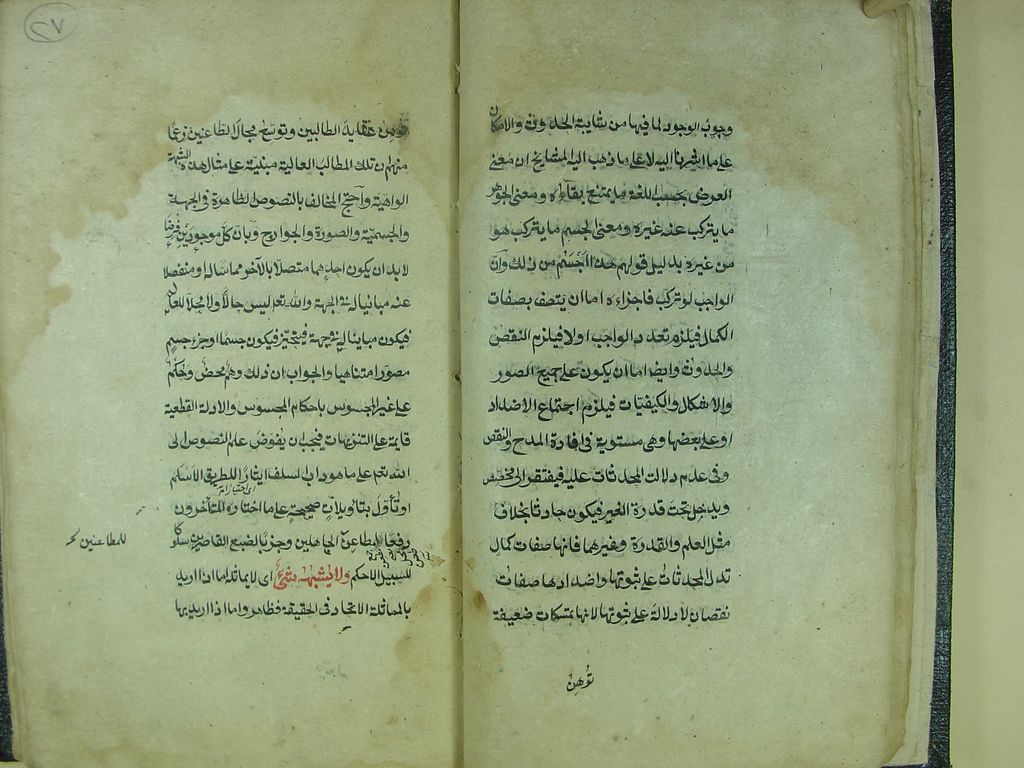 وجوب الوجود لما فيها من شايبة الحدوث والامكان
على ما اشرنا اليه لا على ما ذهب اليه المشايخ ان معنى
العرض بحسب اللغة ما يمتنع بقاؤه ومعنى الجوهر
ما يتركب عنه غيره ومعنى الجسم ما يتركب هو
من غيره بدليل قولهم هذا اجسم من ذلك وان
الواجب لو تركب فاجزاءه اما ان يتصف بصفات
الكمال فيلزم تعدد الواجب اولا فيلزم النقص
والحدوث وايضا اما ان يكون على جميع الصور
والاشكال والكيفيات فيلزم اجتماع الاضداد
او على بعضها وهى مستوية فى افادة المدح والنقص
وفى عدم دلالت المحدثات عليه فيفتقر الى مخصص
ويدخل تحت قدرة الغير فيكون حادثا بخلاف
مثل العلم والقدرة وغيرهما فانها صفات كمال
تدل المحدثات على ثبوتها واضدادها صفات
نقصان لا دلالة على ثبوتها لانها تمسكات ضعيفة
توهن
٢٧
توهن عقايد الطالبين وتوسع مجال الطاعنين زعما
منهم ان تلك المطالب العالية مبنية على مثال هذه الشبهة
الواهية واحتج المخالف بالنصوص الظاهرة فى الجهة
والجسمية والصورة والجوارح وبان كل موجودين فرضا
لابد ان يكون احدهما متصلا بالآخر مماسا له او منفصلا
عنه مباينا له فى الجهة والله تعم ليس حالا ولا محلا للعالم
فيكون مباينا له فى جهة فيتحيز فيكون جسما او جزء جسم
مصورا متناهيا والجواب ان ذلك وهم محض وحكم
على غير المحسوس باحكام المحسوس والادلة القطعية
قايمة على التنزيهات فيجب ان يفوض علم النصوص الى
الله تعم على ما هو داب السلف ايثارا للطريق الاسلم
او تأول بتأويلات صحيحة على ما اختاره المتأخرون
رفعا لمطاعن الجاهلين وجذبا لضبع القاصرين سلوكا
للسبيل الاحكم ولا يشبهه شئ اى لا يماثله اما اذا اريد
بالمماثلة الاتحاد فى الحقيقة فظاهر واما اذا اريد بها
للمطاعنين